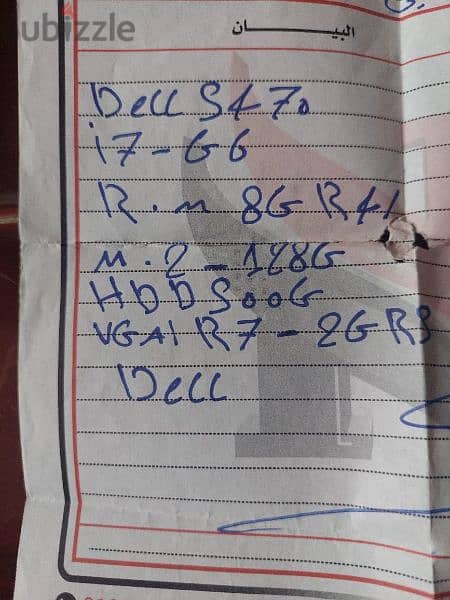 ubizzle
البيـــــــــان
Dell S470
i7-G6
R.m 8G R4
M.2-128G
HDD 500G
VGA R7-2G R3
Dell